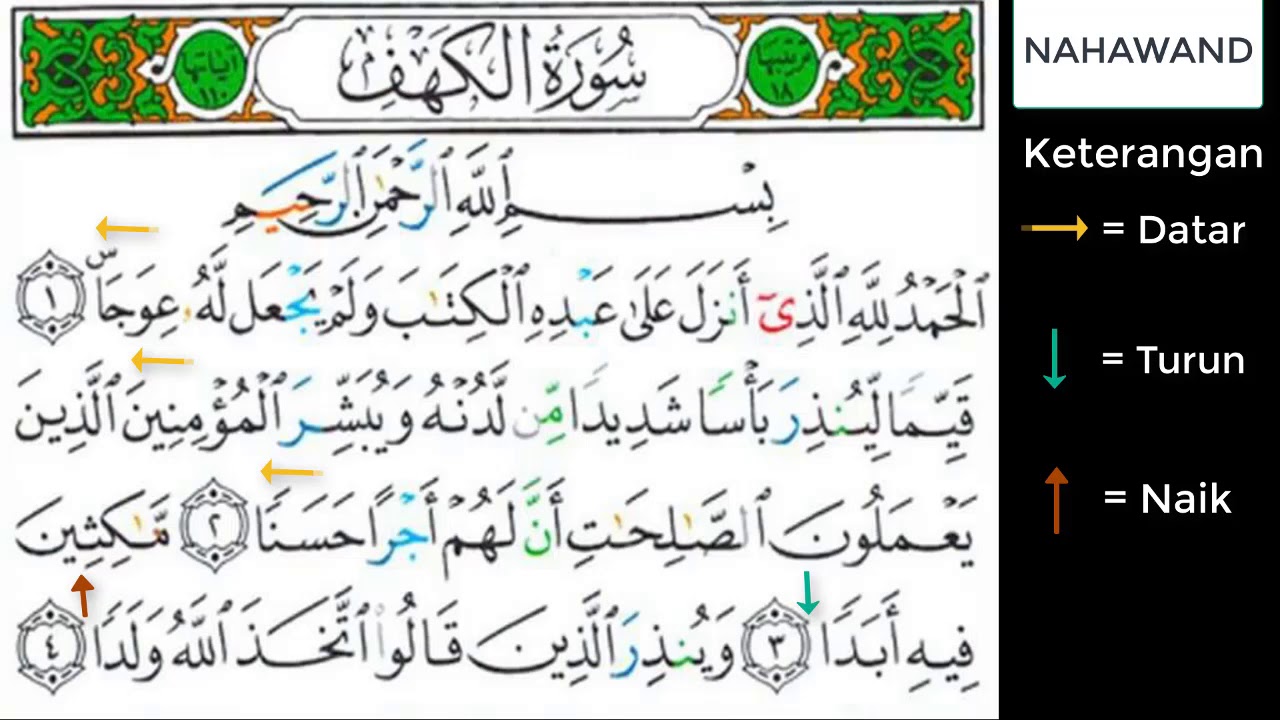 سُورَةُ الْكَهْفِ
ترتيبها ١٨
آياتها ١١٠
بِسْمِ ٱللَّهِ ٱلرَّحْمَٰنِ ٱلرَّحِيمِ
ٱلْحَمْدُ لِلَّهِ ٱلَّذِىٓ أَنزَلَ عَلَىٰ عَبْدِهِ ٱلْكِتَٰبَ وَلَمْ يَجْعَل لَّهُۥ عِوَجَاۜ ١
قَيِّمًا لِّيُنذِرَ بَأْسًا شَدِيدًا مِّن لَّدُنْهُ وَيُبَشِّرَ ٱلْمُؤْمِنِينَ ٱلَّذِينَ
يَعْمَلُونَ ٱلصَّٰلِحَٰتِ أَنَّ لَهُمْ أَجْرًا حَسَنًا ٢ مَّٰكِثِينَ
فِيهِ أَبَدًا ٣ وَيُنذِرَ ٱلَّذِينَ قَالُوا۟ ٱتَّخَذَ ٱللَّهُ وَلَدًا ٤
NAHAWAND
Keterangan
= Datar
= Turun
= Naik